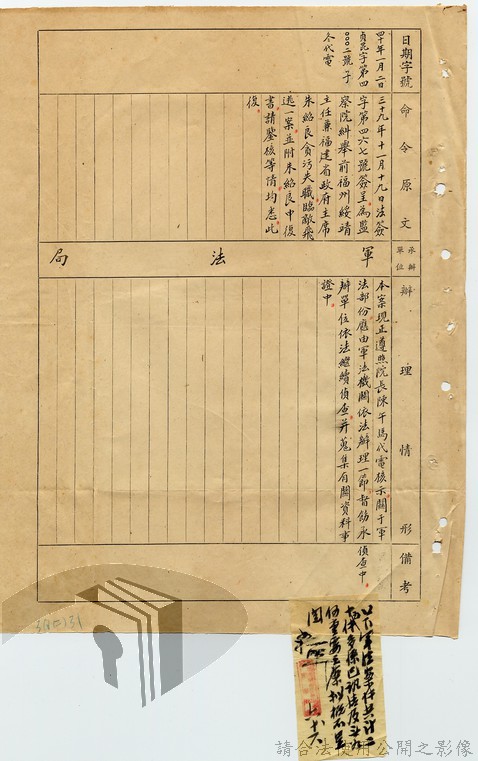 日期字號
四十年一月二日
貞昆字第四
〇〇二號子
冬代電
命令原文
三十九年十一月十九日法簽
字第四六七號簽呈為監
察院糾舉前福州綏靖
主任兼福建省政府主席
朱紹良貪污失職臨敵飛
逃一案並附朱紹良申復
書請鑒核等情均悉此
復
承辦單位
軍法局
辦理情形
本案現正遵照院長陳午馬代電核示關于軍
法部份應由軍法機關依法辦理一節督飭承
辦單位依法繼續偵查并蒐集有關資料事
證中
備考
偵查中
以下軍法案件共計二
閱
請合法使用公開之影像